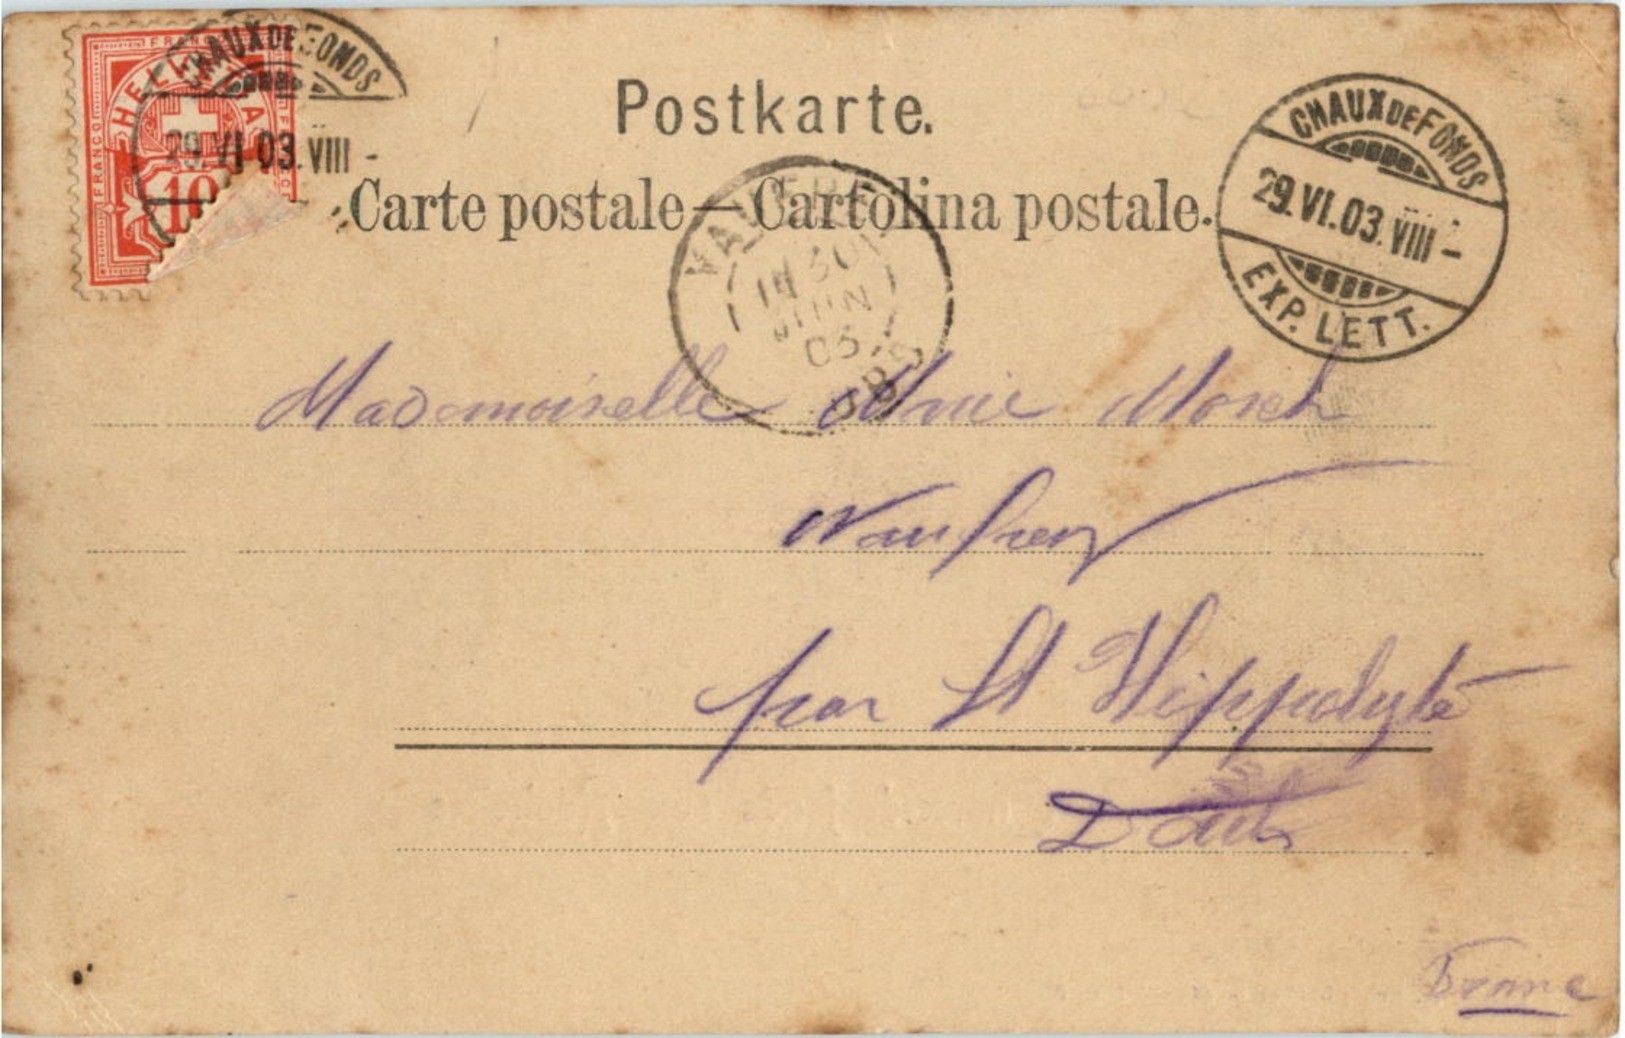 FRANCO
HELVETIA
FRANCO
10
CHAUX DE FONDS
29.VI.03.VIII-
Postkarte.
Carte postale — Cartolina postale.
CHAUX DE FONDS
29.VI.03.VIII-
EXP. LETT.
30
JUIN
03
Mademoiselle Marie
par St Hippolyte
Doubs